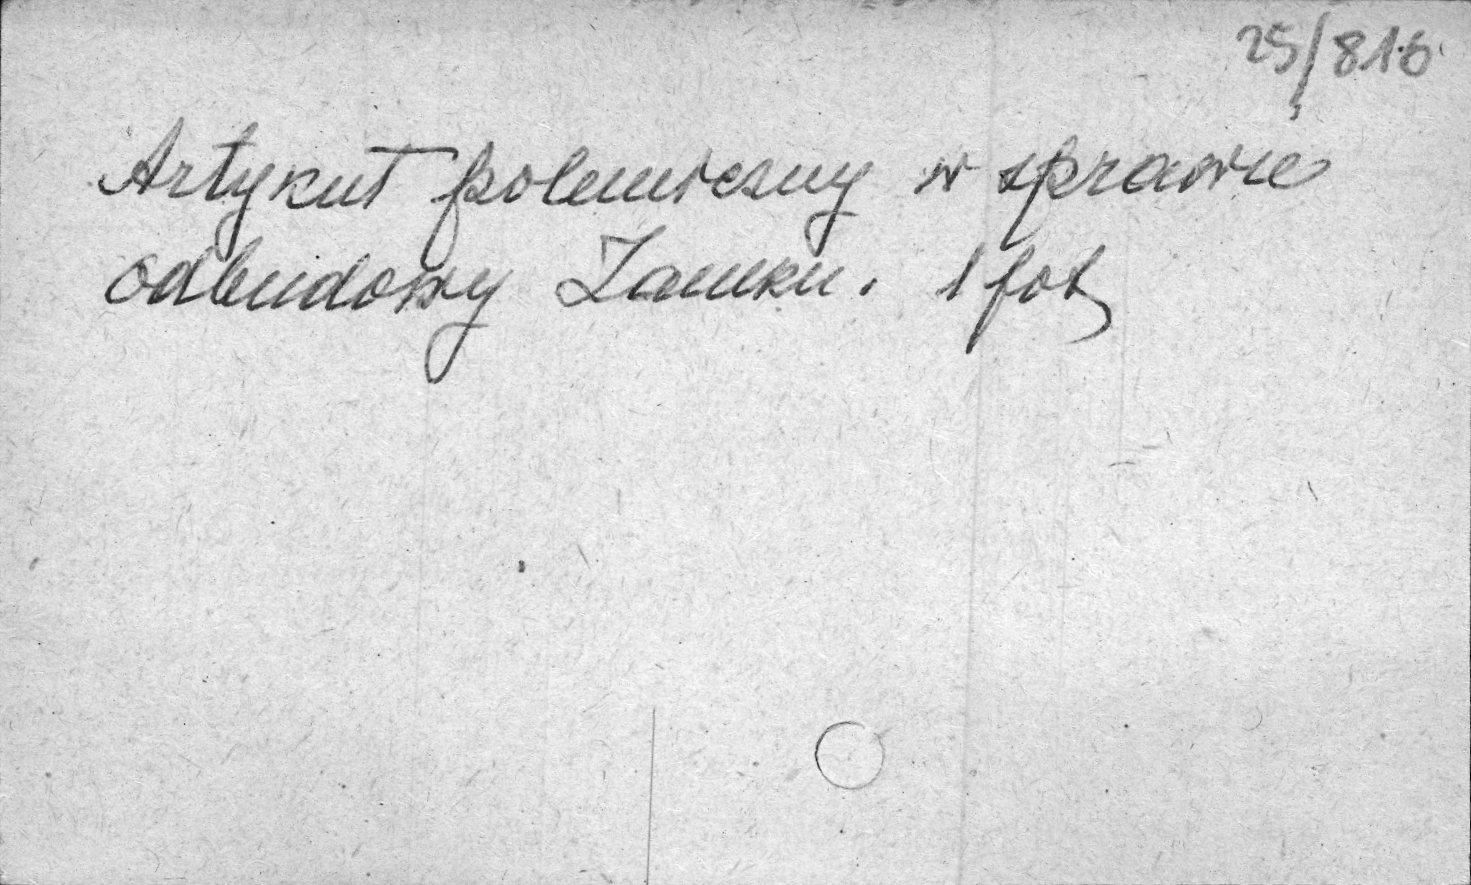 25/816
Artykuł polemiczny w sprawie
odbudowy Zamku. 1 fot